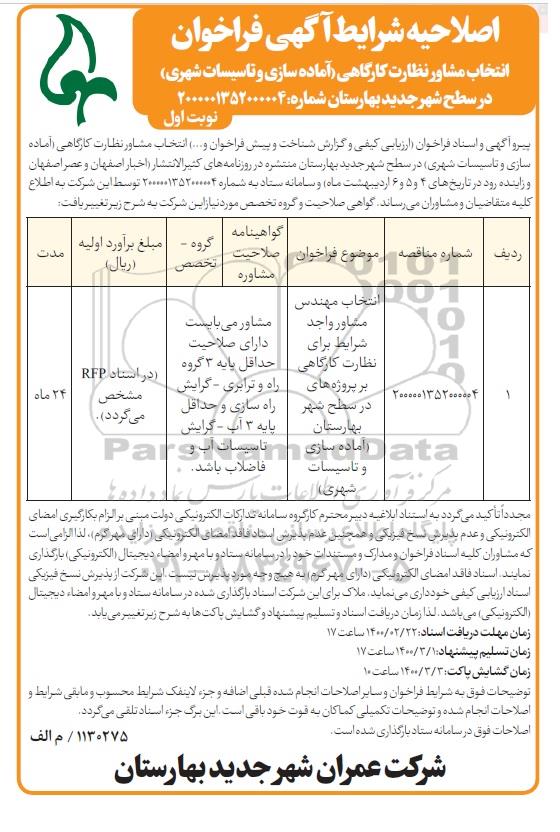 اصلاحیه شرایط آگهی فراخوان
انتخاب مشاور نظارت کارگاهی (آماده سازی و تاسیسات شهری)
در سطح شهر جدید بهارستان شماره: ۲۰۰۰۰۰۱۳۵۲۰۰۰۰۰۴
نوبت اول
پیرو آگهی و اسناد فراخوان (ارزیابی کیفی و گزارش شناخت و پیش فراخوان و...) انتخاب مشاور نظارت کارگاهی (آماده
سازی و تاسیسات شهری) در سطح شهر جدید بهارستان منتشره در روزنامه‌های کثیرالانتشار (اخبار اصفهان و عصر اصفهان
و زاینده رود در تاریخ‌های ۴ و ۵ و ۶ اردیبهشت ماه) و سامانه ستاد به شماره ۲۰۰۰۰۰۱۳۵۲۰۰۰۰۰۴ توسط این شرکت به اطلاع
کلیه متقاضیان و مشاوران می‌رساند. گواهی صلاحیت و گروه تخصص مورد نیاز این شرکت به شرح زیر تغییر یافت:
ردیف
شماره مناقصه
موضوع فراخوان
گواهینامه
صلاحیت
مشاوره
گروه -
تخصص
مبلغ برآورد اولیه
(ریال)
مدت
۱
۲۰۰۰۰۰۱۳۵۲۰۰۰۰۰۴
انتخاب مهندس
مشاور واجد
شرایط برای
نظارت کارگاهی
بر پروژه‌های
در سطح شهر
بهارستان
(آماده سازی
و تاسیسات
شهری)
مشاور می‌بایست
دارای صلاحیت
حداقل پایه ۳ گروه
راه و ترابری - گرایش
راه سازی و حداقل
پایه ۳ آب - گرایش
تاسیسات آب و
فاضلاب باشد.
(در اسناد RFP
مشخص
می‌گردد).
۲۴ ماه
ParsNamadData
مجدداً تأکید می‌گردد به استناد ابلاغیه دبیر محترم کارگروه سامانه تدارکات الکترونیکی دولت مبنی بر الزام بکارگیری امضای
الکترونیکی و عدم پذیرش نسخ فیزیکی و همچنین عدم پذیرش اسناد فاقد امضای الکترونیکی (دارای مهر گرم)، لذا الزامی است
که مشاوران کلیه اسناد فراخوان و مدارک و مستندات خود را در سامانه ستاد و با مهر و امضاء دیجیتال (الکترونیکی) بارگذاری
نمایند. اسناد فاقد امضای الکترونیکی (دارای مهر گرم) به هیچ وجه مورد پذیرش نیست. این شرکت از پذیرش نسخ فیزیکی
اسناد ارزیابی کیفی خودداری می‌نماید. ملاک برای این شرکت اسناد بارگذاری شده در سامانه ستاد و با مهر و امضاء دیجیتال
(الکترونیکی) می‌باشد. لذا زمان دریافت اسناد و تسلیم پیشنهاد و گشایش پاکت‌ها به شرح زیر تغییر می‌یابد.
زمان مهلت دریافت اسناد: ۱۴۰۰/۰۲/۲۲ ساعت ۱۷
زمان تسلیم پیشنهاد: ۱۴۰۰/۳/۱ ساعت ۱۷
زمان گشایش پاکت: ۱۴۰۰/۳/۳ ساعت ۱۰
توضیحات فوق به شرایط فراخوان و سایر اصلاحات انجام شده قبلی اضافه و جزء لاینفک شرایط محسوب و مابقی شرایط و
اصلاحات انجام شده و توضیحات تکمیلی کماکان به قوت خود باقی است. این برگ جزء اسناد تلقی می‌گردد.
اصلاحات فوق در سامانه ستاد بارگذاری شده است.
۱۱۳۰۲۷۵ / م الف
شرکت عمران شهر جدید بهارستان